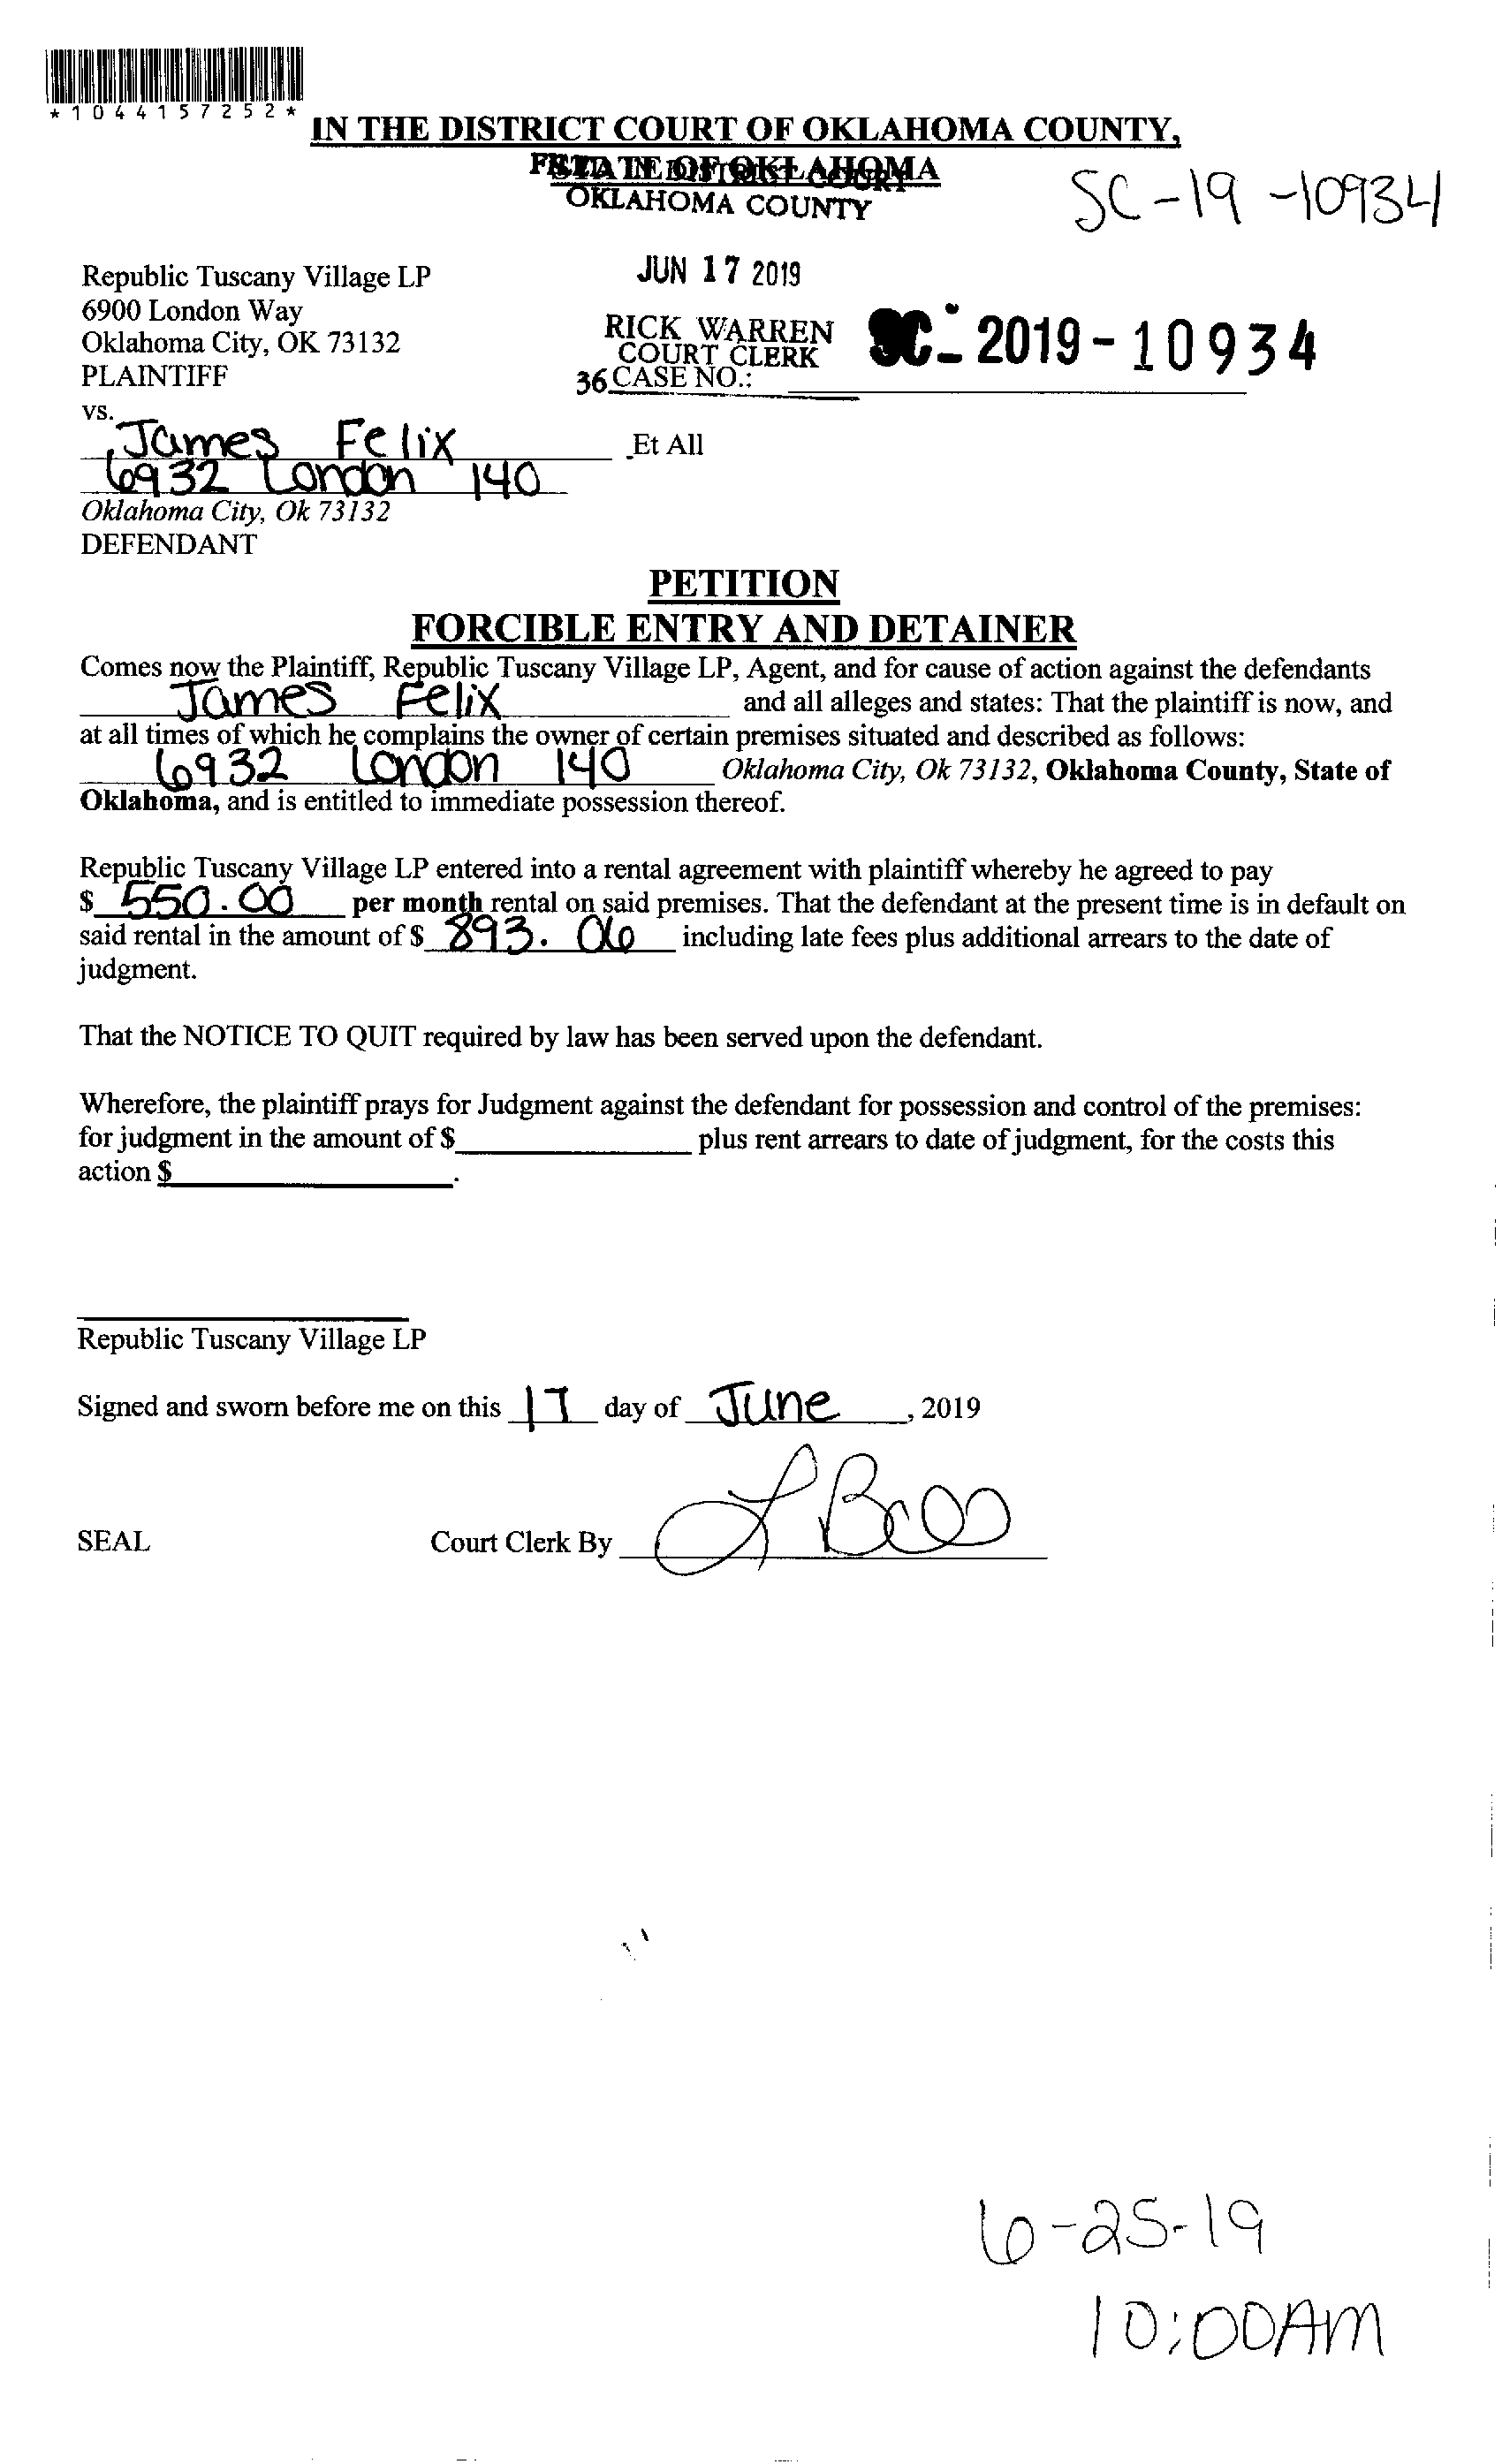 *1044157252*
IN THE DISTRICT COURT OF OKLAHOMA COUNTY,
STATE OF OKLAHOMA
FILED IN DISTRICT COURT
OKLAHOMA COUNTY
SC-19-10934
JUN 17 2019
Republic Tuscany Village LP
6900 London Way
Oklahoma City, OK 73132
PLAINTIFF
RICK WARREN
COURT CLERK
SC- 2019-10934
36 CASE NO.:
vs.
James Felix Et All
6932 London 140
Oklahoma City, Ok 73132
DEFENDANT
PETITION
FORCIBLE ENTRY AND DETAINER
Comes now the Plaintiff, Republic Tuscany Village LP, Agent, and for cause of action against the defendants
James Felix and all alleges and states: That the plaintiff is now, and
at all times of which he complains the owner of certain premises situated and described as follows:
6932 London 140 Oklahoma City, Ok 73132, Oklahoma County, State of
Oklahoma, and is entitled to immediate possession thereof.
Republic Tuscany Village LP entered into a rental agreement with plaintiff whereby he agreed to pay
$ 550.00 per month rental on said premises. That the defendant at the present time is in default on
said rental in the amount of $ 893.06 including late fees plus additional arrears to the date of
judgment.
That the NOTICE TO QUIT required by law has been served upon the defendant.
Wherefore, the plaintiff prays for Judgment against the defendant for possession and control of the premises:
for judgment in the amount of $ plus rent arrears to date of judgment, for the costs this
action $ .
Republic Tuscany Village LP
Signed and sworn before me on this 17 day of June, 2019
SEAL Court Clerk By
6-25-19
10:00AM